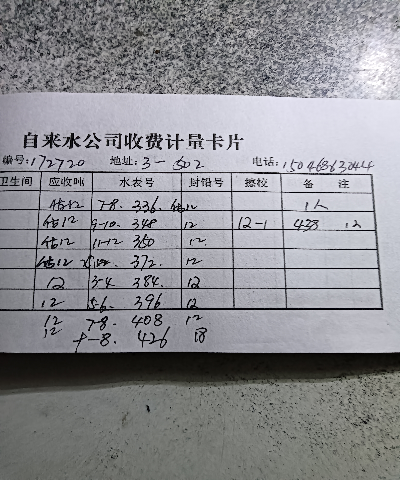 自来水公司收费计量卡片
编号:172720 地址:3-502 电话:15046863044
卫生间 应收吨 水表号 封铅号 擦校 备 注
估12 7-8. 336 估12 1人
估12 9-10. 348 12 12-1 438 12
估12 11-12 350 12.
估12 372. 12
12 3-4 384. 12
12 5-6. 396 12
12 7-8. 408 12
12 426 18